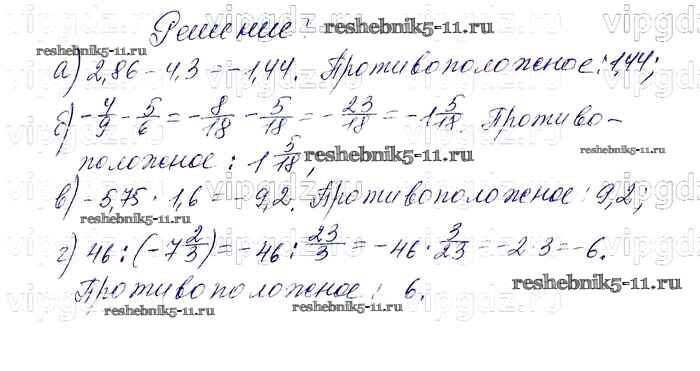 Решение:
reshebnik5-11.ru
reshebnik5-11.ru
а) 2,86 - 4,3 = -1,44. Противоположное: 1,44;
б) -4/9 - 5/6 = -8/18 - 5/18 = -23/18 = -1 5/18. Противо-
reshebnik5-11.ru
положное: 1 5/18;
reshebnik5-11.ru
в) -5,75 · 1,6 = -9,2. Противоположное: 9,2;
reshebnik5-11.ru
г) 46 : (-7 2/3) = -46 : 23/3 = -46 · 3/23 = -2 · 3 = -6.
Противоположное: 6.
reshebnik5-11.ru
reshebnik5-11.ru
vipgdz.ru